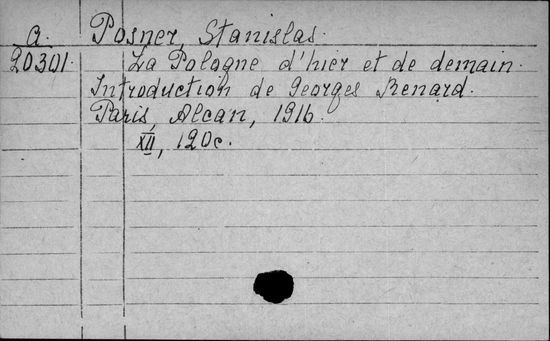 a. Posner, Stanislas.
20301. La Pologne d'hier et de demain.
Introduction de Georges Renard.
Paris, Alcan, 1916.
XII, 120c.